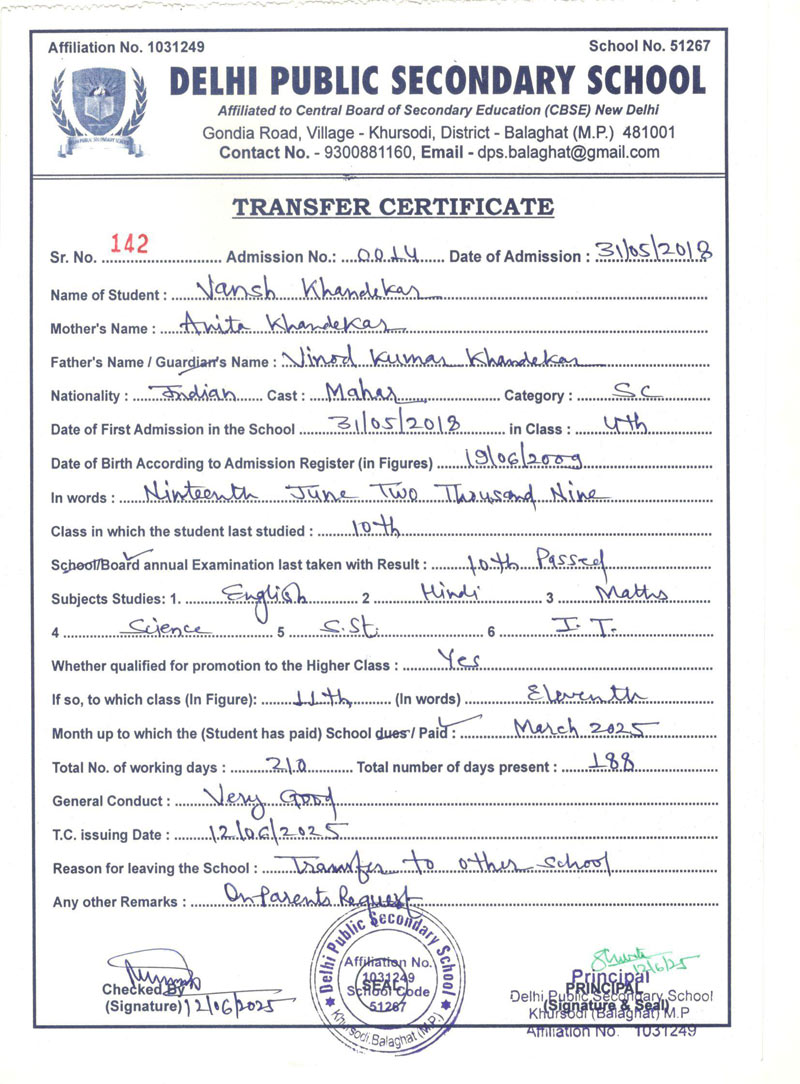 Affiliation No. 1031249 School No. 51267
DELHI PUBLIC SECONDARY SCHOOL
Affiliated to Central Board of Secondary Education (CBSE) New Delhi
Gondia Road, Village - Khursodi, District - Balaghat (M.P.) 481001
Contact No. - 9300881160, Email - dps.balaghat@gmail.com
DELHI PUBLIC SECONDARY SCHOOL
TRANSFER CERTIFICATE
Sr. No. 142 Admission No.: 0014 Date of Admission : 31/05/2018
Name of Student : Vansh Khandekar
Mother's Name : Anita Khandekar
Father's Name / Guardian's Name : Vinod Kumar Khandekar
Nationality : Indian Cast : Mahar Category : SC
Date of First Admission in the School 31/05/2018 in Class : 4th
Date of Birth According to Admission Register (in Figures) 19/06/2009
In words : Ninteenth June Two Thousand Nine
Class in which the student last studied : 10th
School/Board annual Examination last taken with Result : 10th Passed
Subjects Studies: 1. English 2 Hindi 3 Maths
4 Science 5 S.St. 6 I.T.
Whether qualified for promotion to the Higher Class : Yes
If so, to which class (In Figure): 11th (In words) Eleventh
Month up to which the (Student has paid) School dues / Paid : March 2025
Total No. of working days : 210 Total number of days present : 188
General Conduct : Very Good
T.C. issuing Date : 12/06/2025
Reason for leaving the School : Transfer to other school
Any other Remarks : On Parents Request
Delhi Public Secondary School
Affiliation No.
1031249
SEAL
School Code
51267
Khursodi, Balaghat (M.P.)
Checked By
(Signature) 12/06/2025
12/6/25
Principal
PRINCIPAL
Delhi Public Secondary School
(Signature & Seal)
Khursodi (Balaghat) M.P
Affiliation No. 1031249